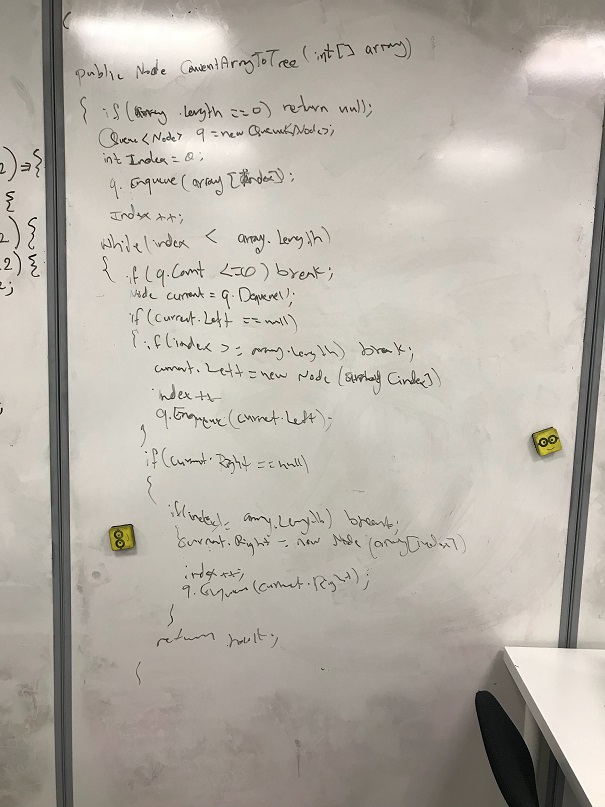 public Node ConvertArryToTree (int[] array)
{ if(array.Length ==0) return null;
Queue<Node> q = new Queue<Node>;
int Index = 0;
q. Enqueue (array [index]);
Index ++;
While (index < array.Length)
{ if (q.Count <=0) break;
Node current = q.Dequeue();
if (current.Left == null)
{ if (index >= array.length) break;
current.Left = new Node ( [index])
index ++
q.Enqueue (current.Left);
}
if (current.Right == null)
{
if(index = array.Length) break;
current.Right = new Node (array[index])
index ++;
q. Enqueue (current.Right);
}
return ;
{
2) => {
{
2) {
.2) {
;
;